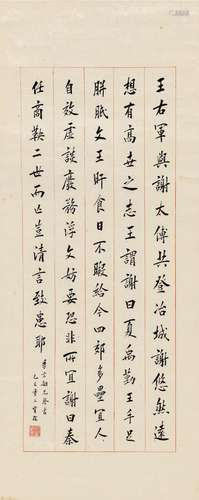 王右軍與謝太傅共登冶城謝悠然遠
想有高世之志王謂謝曰夏禹勤王手足
胼胝文王旰食日不暇給今四郊多壘宜人人
自效虛談廢務浮文妨要恐非所宜謝曰秦
任商鞅二世而亡豈清言致患耶